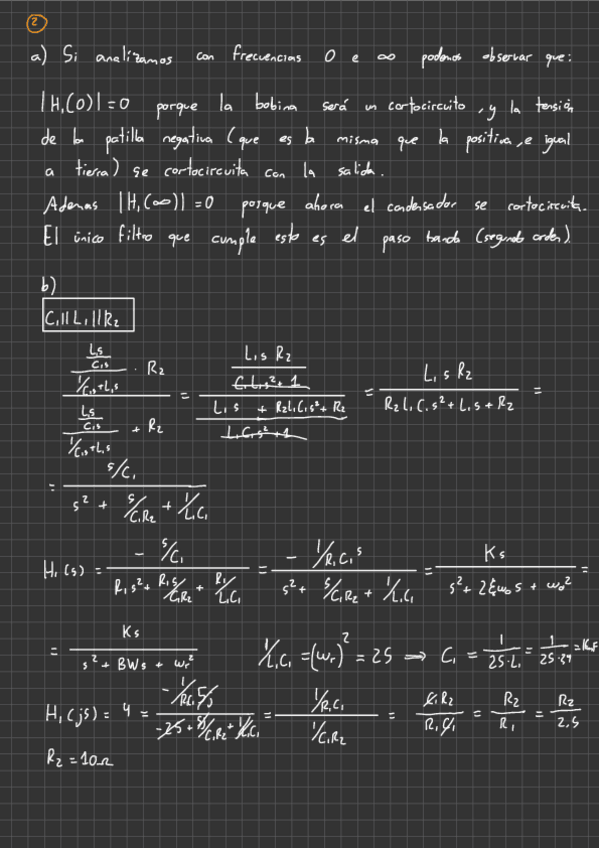 2
a) Si analizamos con frecuencias 0 e ∞ podemos observar que:
|H₁(0)| = 0 porque la bobina será un cortocircuito, y la tensión
de la patilla negativa (que es la misma que la positiva, e igual
a tierra) se cortocircuita con la salida.
Ademas |H₁(∞)| = 0 porque ahora el condensador se cortocircuita.
El único filtro que cumple esto es el paso banda (segundo orden)
b)
C₁||L₁||R₂
((L₁s/C₁s)/(1/C₁s+L₁s) · R₂)/((L₁s/C₁s)/(1/C₁s+L₁s) + R₂) = (L₁sR₂/(C₁L₁s²+1))/((L₁s + R₂L₁C₁s² + R₂)/(L₁C₁s²+1)) = L₁sR₂/(R₂L₁C₁s² + L₁s + R₂) =
= (s/C₁)/(s² + s/C₁R₂ + 1/L₁C₁)
H₁(s) = (- s/C₁)/(R₁s² + R₁s/C₁R₂ + R₁/L₁C₁) = (- 1/R₁C₁ s)/(s² + s/C₁R₂ + 1/L₁C₁) = Ks/(s² + 2ξω₀s + ω₀²) =
= Ks/(s² + BWs + ωr²) 1/L₁C₁ = (ωr)² = 25 ⇒ C₁ = 1/(25·L₁) =
H₁(j5) = 4 = (-1/R₁C₁ 5j)/(-25 + 5j/C₁R₂ + 1/L₁C₁) = (1/R₁C₁)/(1/C₁R₂) = C₁R₂/R₁C₁ = R₂/R₁ = R₂/2.5
R₂ = 10Ω